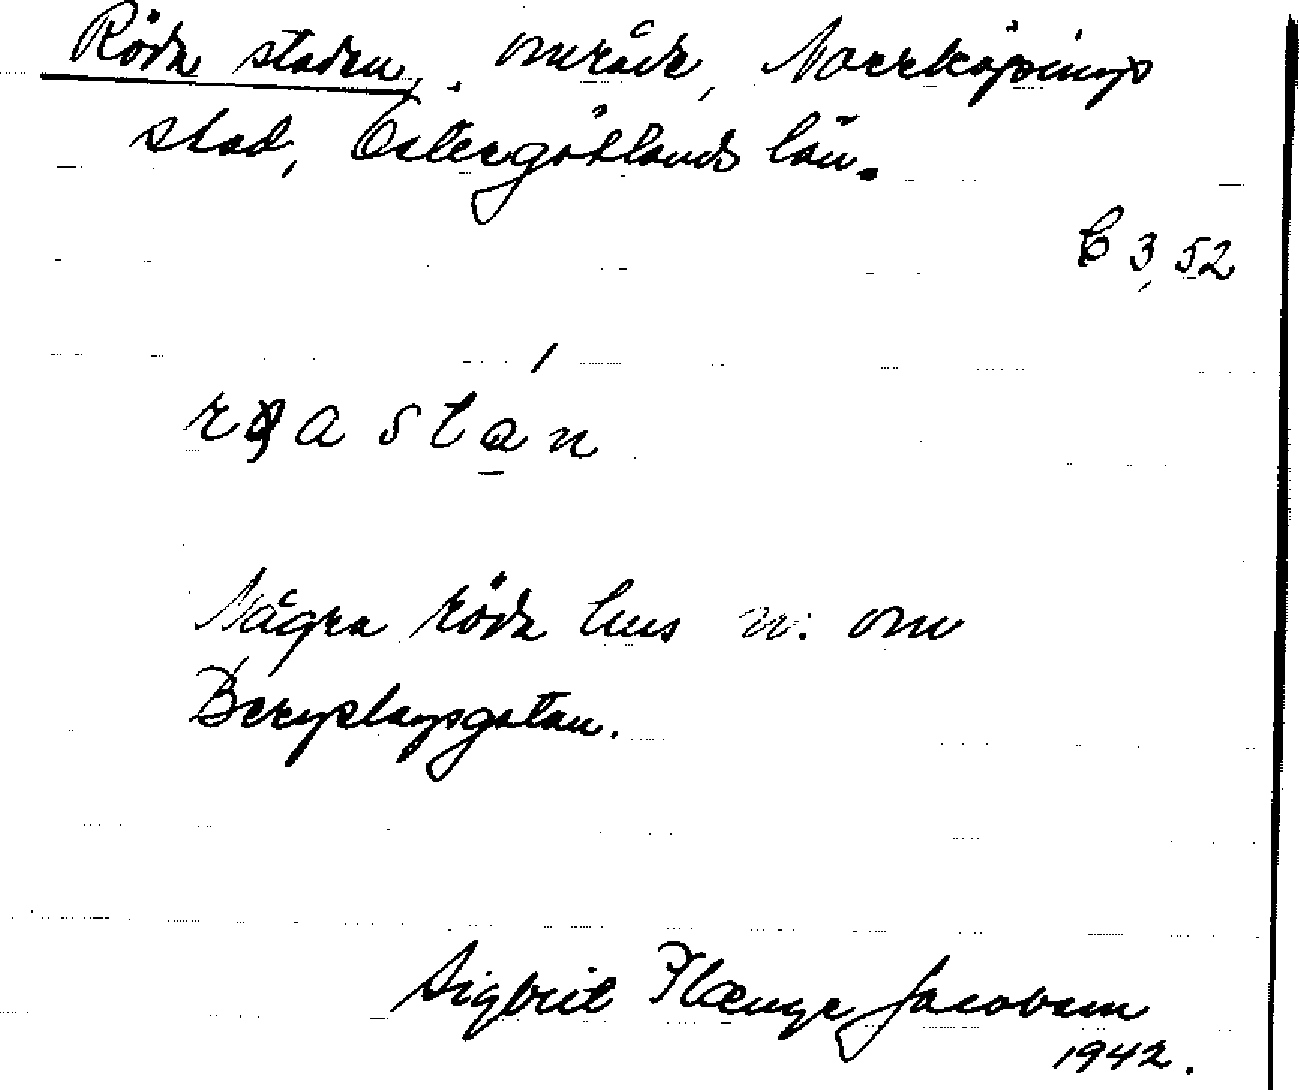 Röda staden, område, Norrköpings
stad, Östergötlands län.
C 3, 52
Några röda hus n. om
Bergslagsgatan.
Sigbrit Plænge Jacobson
1942.